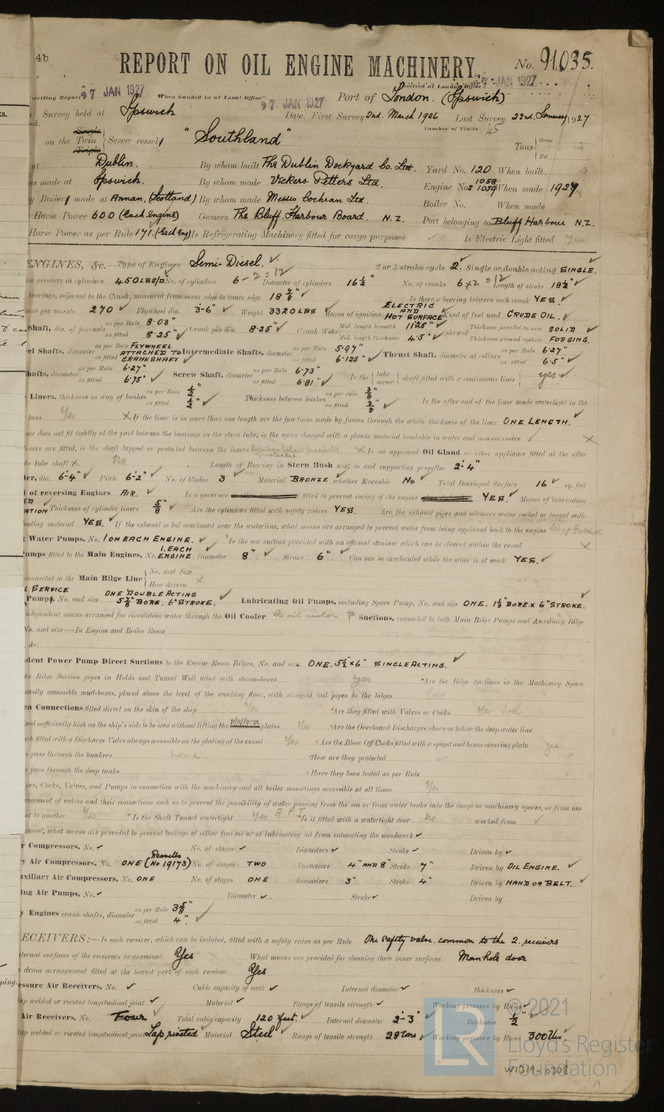 4b REPORT ON OIL ENGINE MACHINERY. No. 91035.
27 JAN 1927 When handed in at Local Office 27 JAN 1927 Port of London. (Ipswich)
Survey held at Ipswich Date, First Survey 2nd. March 1926 Last Survey 1927
Number of Visits 45
on the Twin Screw vessel "Southland" Tons
Dublin. By whom built The Dublin Dockyard Co. Ltd. Yard No. 120 When built
made at Ipswich. By whom made Vickers Petters Ltd. Engine Nos 1058 1059 When made 1927
Boiler made at Annan, (Scotland) By whom made Messrs Cochran Ltd. Boiler No. When made
Horse Power 600 (Each Engine) Owners The Bluff Harbour Board, N.Z. Port belonging to Bluff Harbour N.Z.
Horse Power as per Rule 171. (Each Eng) Is Refrigerating Machinery fitted for cargo purposes Is Electric Light fitted Yes
ENGINES, &c.— Type of Engines Semi-Diesel. 2 or 4 stroke cycle 2. Single or double acting SINGLE.
pressure in cylinders 450 LBS/□" No. of cylinders 6 - 2 = 12 Diameter of cylinders 16½" No. of cranks 6 × 2 = 12 Length of stroke 18½"
bearings, adjacent to the Crank, measured from inner edge to inner edge 18 Is there a bearing between each crank YES.
per minute 270 Flywheel dia. 3'-6" Weight 3320 LBS Means of ignition ELECTRIC AND HOT SURFACE Kind of fuel used CRUDE OIL.
Shaft, dia. of journals as per Rule 8·03" as fitted 8·25" Crank pin dia. 8·25" Crank Webs Mid. length breadth 11·25" Mid. length thickness 4·5" Thickness parallel to axis SOLID Thickness around eyehole FORGING.
wheel Shafts, diameter as per Rule FLYWHEEL ATTACHED TO as fitted CRANKSHAFT Intermediate Shafts, diameter as per Rule 5·97" as fitted 6·125" Thrust Shaft, diameter at collars as per Rule 6·27" as fitted 6·5"
Shafts, diameter as per Rule 6·27" as fitted 6·75" Screw Shaft, diameter as per Rule 6·73" as fitted 6·81" Is the shaft fitted with a continuous liner yes
Liners, thickness in way of bushes as per Rule ½" as fitted ½" Thickness between bushes as per rule 3/8" as fitted 3/8" Is the after end of the liner made watertight in the
boss Yes If the liner is in more than one length are the junctions made by fusion through the whole thickness of the liner ONE LENGTH.
liner does not fit tightly at the part between the bearings in the stern tube, is the space charged with a plastic material insoluble in water and non-corrosive
liners are fitted, is the shaft lapped or protected between the liners Is an approved Oil Gland or other appliance fitted at the after
tube shaft No Length of Bearing in Stern Bush next to and supporting propeller 2'-4"
dia. 6'-4" Pitch 6'-2" No. of blades 3 Material BRONZE whether Moveable NO Total Developed Surface 16 sq. feet
of reversing Engines AIR. Is a governor fitted to prevent racing of the engine YES. Means of lubrication
Thickness of cylinder liners 5/8" Are the cylinders fitted with safety valves YES. Are the exhaust pipes and silencers water cooled or lagged with
material YES. If the exhaust is led overboard near the waterline, what means are arranged to prevent water from being syphoned back to the engine
Water Pumps, No. 1 ON EACH ENGINE. Is the sea suction provided with an efficient strainer which can be cleared within the vessel
Pumps fitted to the Main Engines, No. 1. EACH ENGINE Diameter 8" Stroke 6" Can one be overhauled while the other is at work YES.
connected to the Main Bilge Line No. and Size How driven
SERVICE Pumps, No. and size ONE DOUBLE ACTING 5⅞" BORE. 6" STROKE. Lubricating Oil Pumps, including Spare Pump, No. and size ONE. 1½" BORE × 6" STROKE.
independent means arranged for circulating water through the Oil Cooler Suctions, connected to both Main Bilge Pumps and Auxiliary Bilge
No. and size:—In Engine and Boiler Room
&c.
Independent Power Pump Direct Suctions to the Engine Room Bilges, No. and size ONE. 5½ × 6" SINGLE ACTING.
the Bilge Suction pipes in Holds and Tunnel Well fitted with strum-boxes yes Are the Bilge Suctions in the Machinery Space
easily accessible mud-boxes, placed above the level of the working floor, with straight tail pipes to the bilges
Connections fitted direct on the skin of the ship Yes Are they fitted with Valves or Cocks
sufficiently high on the ship's side to be seen without lifting the platform plates Yes Are the Overboard Discharges above or below the deep water line
each fitted with a Discharge Valve always accessible on the plating of the vessel Yes Are the Blow Off Cocks fitted with a spigot and brass covering plate yes
pass through the bunkers none. How are they protected
pass through the deep tanks Have they been tested as per Rule
Pipes, Cocks, Valves, and Pumps in connection with the machinery and all boiler mountings accessible at all times Yes
arrangement of valves and their connections such as to prevent the possibility of water passing from the sea or from water tanks into the cargo or machinery spaces, or from one
to another Yes Is the Shaft Tunnel watertight Yes Is it fitted with a watertight door no worked from
vessel, what means are provided to prevent leakage of either fuel oil or of lubricating oil from saturating the woodwork
Air Compressors, No. No. of stages Diameters Stroke Driven by
Air Compressors, No. ONE (No 19173) No. of stages TWO Diameters 4" AND 8" Stroke 7" Driven by OIL ENGINE.
Auxiliary Air Compressors, No. ONE No. of stages ONE Diameters 3" Stroke 4" Driven by HAND OR BELT.
Air Pumps, No. Diameter Stroke Driven by
Engines crank shafts, diameter as per Rule 3⅝" as fitted 4"
RECEIVERS:— Is each receiver, which can be isolated, fitted with a safety valve as per Rule One safety valve, common to the 2. receivers
internal surfaces of the receivers be examined Yes What means are provided for cleaning their inner surfaces Manhole door
drain arrangement fitted at the lowest part of each receiver Yes
Pressure Air Receivers, No. Cubic capacity of each Internal diameter thickness
lap welded or riveted longitudinal joint Material Range of tensile strength Working pressure by Rules
Air Receivers, No. Four Total cubic capacity 120 feet Internal diameter 2'-3" thickness ½"
lap welded or riveted longitudinal joint Lap riveted Material Steel Range of tensile strength 28 tons Working pressure by Rules 300 lbs.
© 2021
LR Lloyd's Register
Foundation